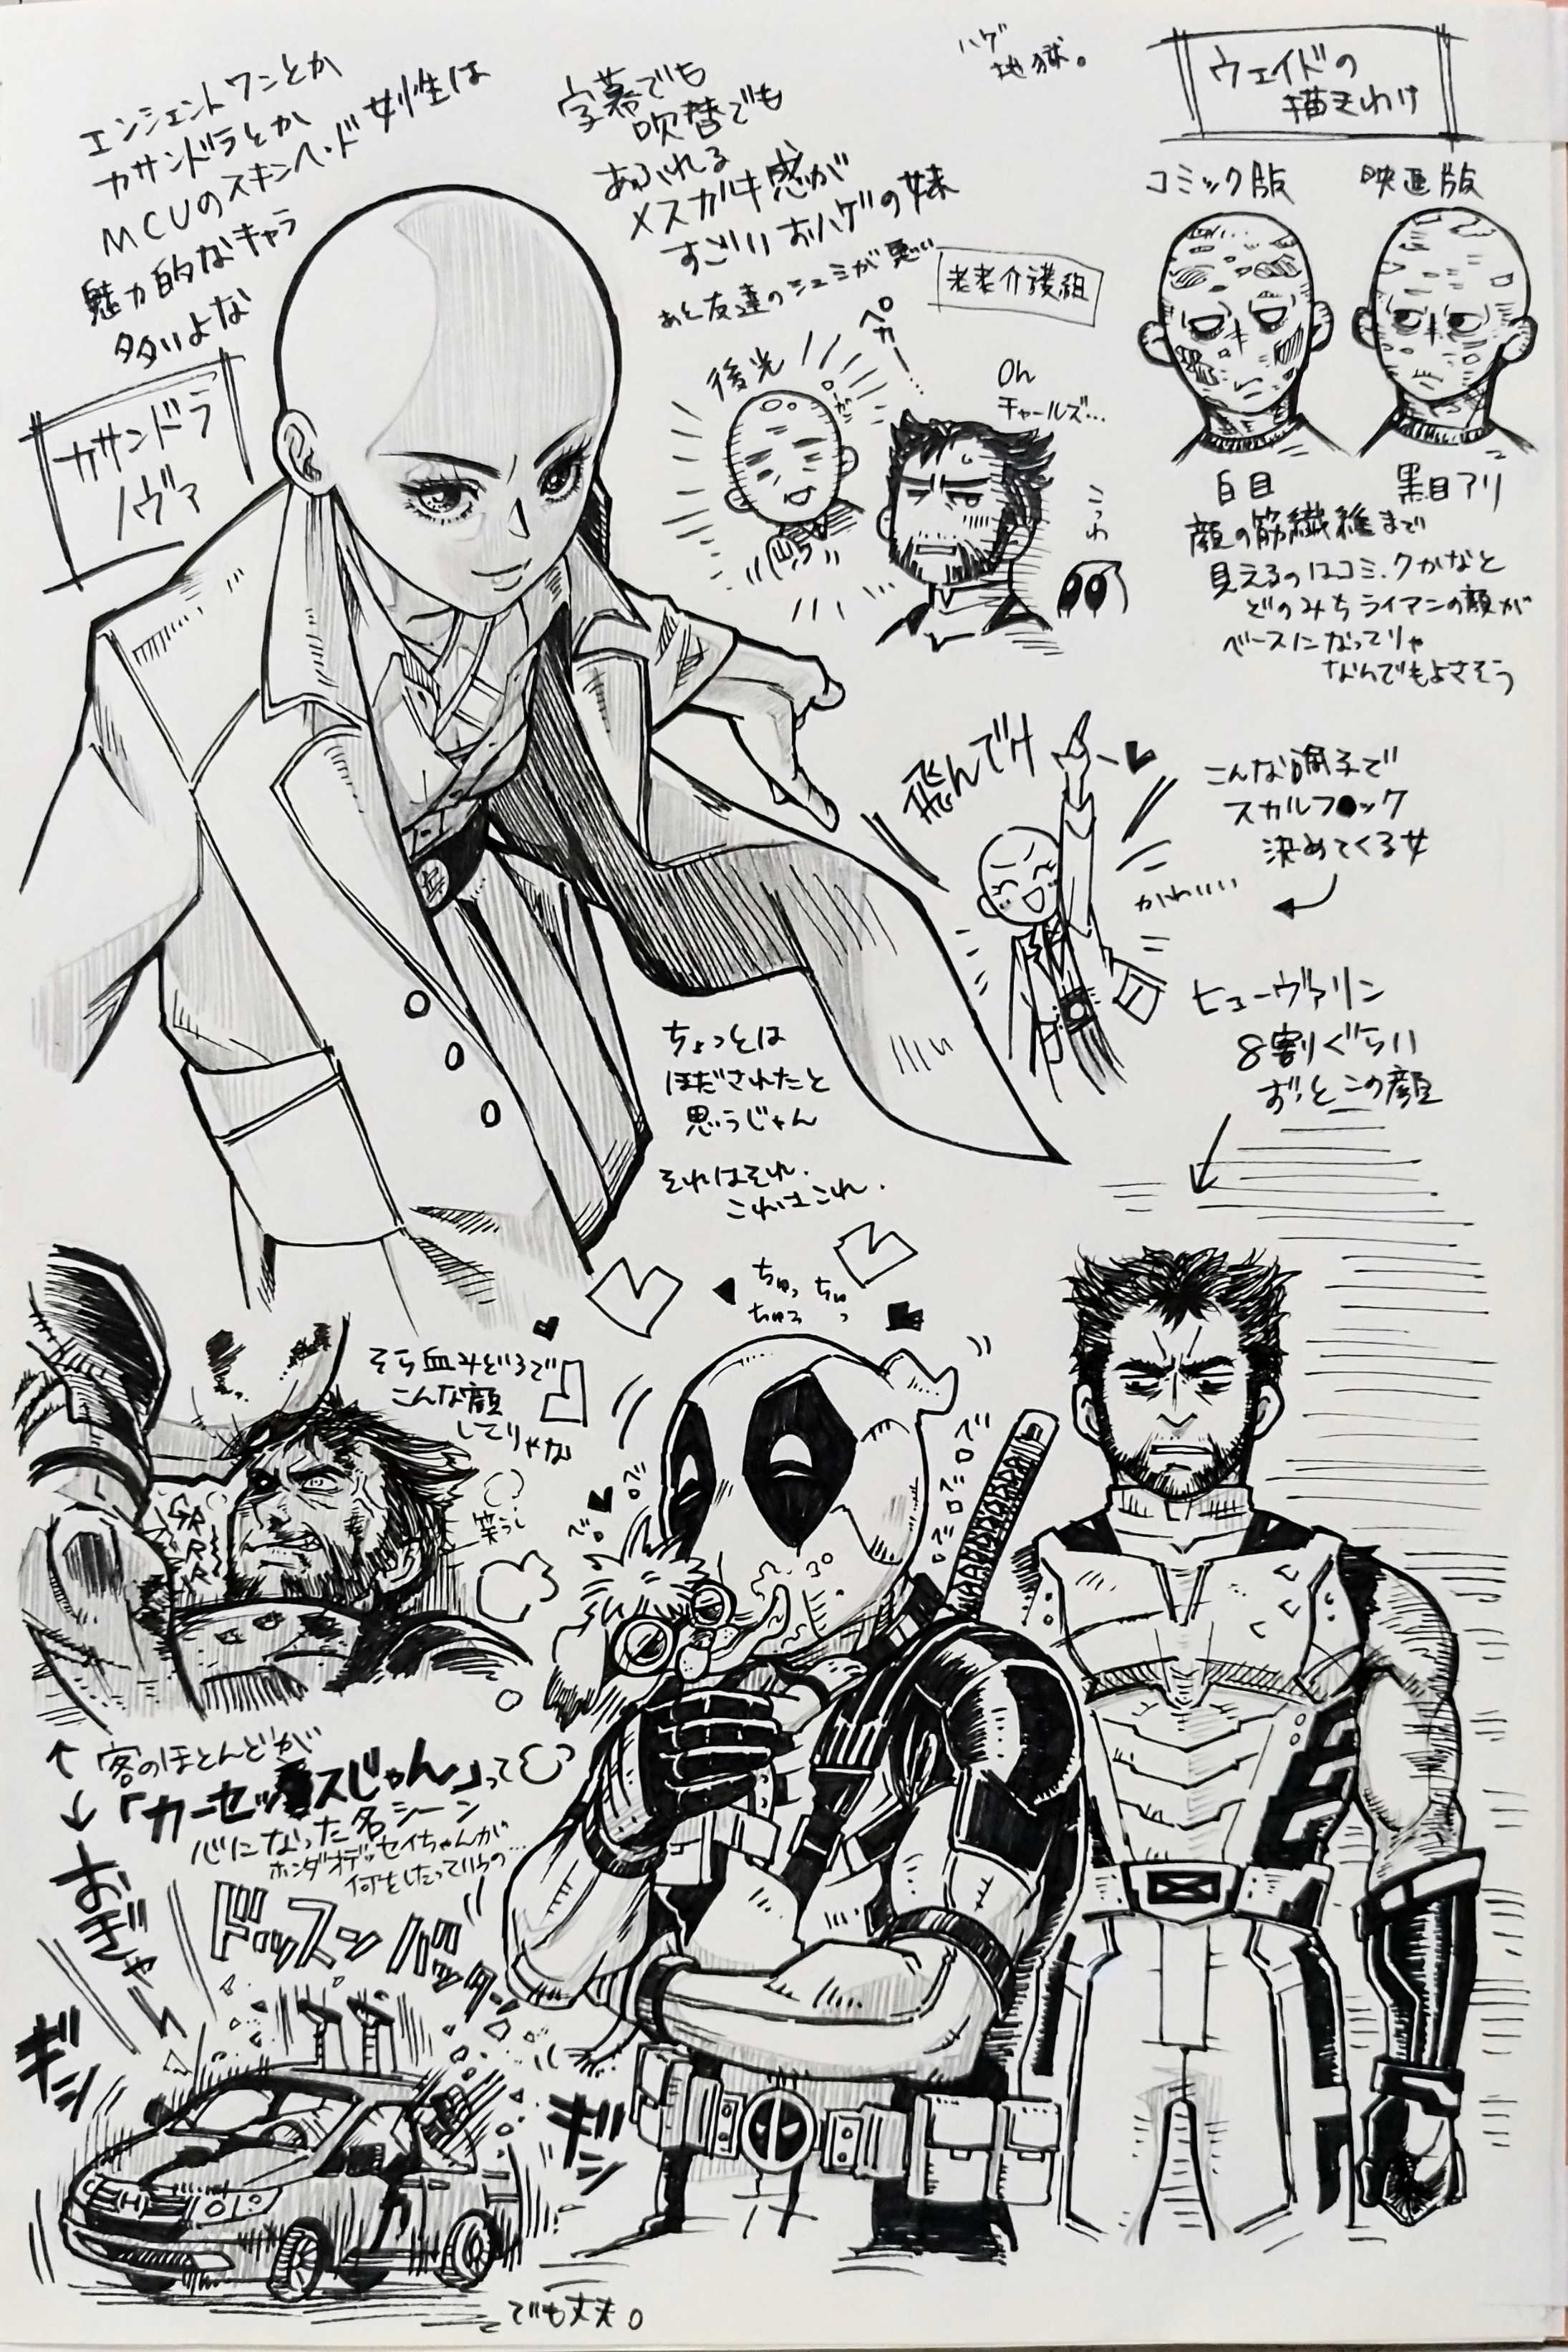 エンシェントワンとか
カサンドラとか
MCUのスキンヘッド女性は
魅力的なキャラ
多いよな
カサンドラ
ノヴァ
字幕でも
吹替でも
あふれる
メスガキ感が
すごいおハゲの妹
あと友達のシュミが悪い
ハゲ
地獄。
ウェイドの
描きわけ
コミック版
映画版
白目
黒目アリ
顔の筋繊維まで
見えるのはコミックかなと
どのみちライアンの顔が
ベースになってりゃ
なんでもよさそう
老老介護組
後光
ペカー…
Oh
チャールズ…
こっわ
飛んでけ
こんな調子で
スカルファック
決めてくる女
かわいい
ヒューヴァリン
8割ぐらい
ずっとこの顔
ちょっとは
ほだされたと
思うじゃん
それはそれ.
これはこれ.
ちゅっ
ちゅっ
ちゅっ
そら血みどろで
こんな顔
してりゃな
GRRRR
笑うし
べろ
べろ
べろべろべろ
客のほとんどが
「カーセックスじゃん」って
心になった名シーン
ホンダオデッセイちゃんが
何をしたっていうの…
おぎゃーん
ドッスン バッタン
ギシ
ギシ
でも丈夫。